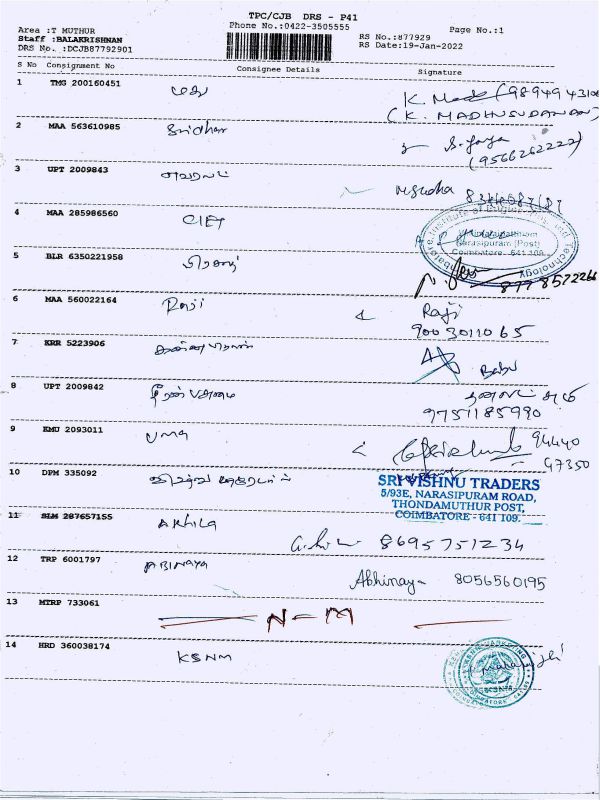 TPC/CJB DRS - P41
Phone No.:0422-3505555
Area :T MUTHUR
Staff :BALAKRISHNAN
DRS No. :DCJB87792901
RS No.:877929
RS Date:19-Jan-2022
Page No.:1
S No Consignment No Consignee Details Signature
1 TMG 200160451 மது K. (9894943106
(K. MADHUSUDANAN)
2 MAA 563610985 Sridhar S. Jaya
(9566262222)
3 UPT 2009843
4 MAA 285986560 CIET
Narasipuram (Post)
Coimbatore - 641 109.
5 BLR 6350221958 8778572266
6 MAA 560022164 Raji Raji
9003011065
7 KRR 5223906 Babu
8 UPT 2009842
9751185990
9 KMU 2093011 உமா 94440
47350
10 DPM 335092
SRI VISHNU TRADERS
5/93E, NARASIPURAM ROAD,
THONDAMUTHUR POST,
COIMBATORE - 641 109.
11 SLM 287657155 AKhila 8695751234
12 TRP 6001797 ABINAYA Abhinaya 8056560195
13 MTRP 733061 N-M
14 HRD 360038174 KSNM